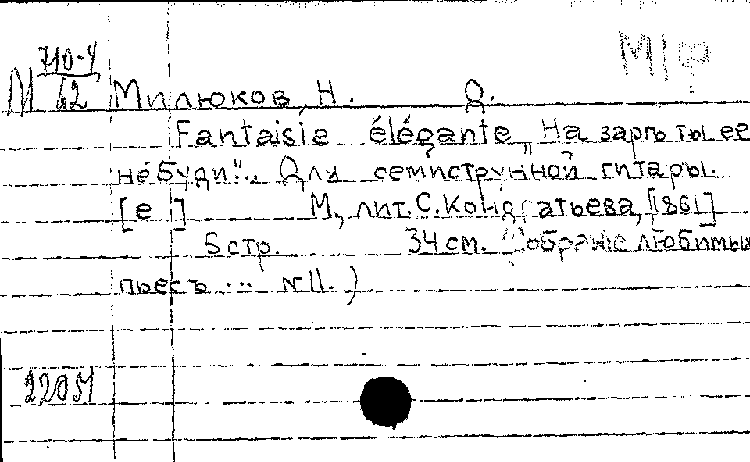 М/Ф
М 710-4/62 Милюков, Н. Д.
Fantaisie élégante „На зарѣ ты ее
не буди“. Для семиструнной гитары.
[e] М, лит. С. Кондратьева, [1861]
5 стр. 34 см. (Собрание любимых
пьесъ ... №11.)